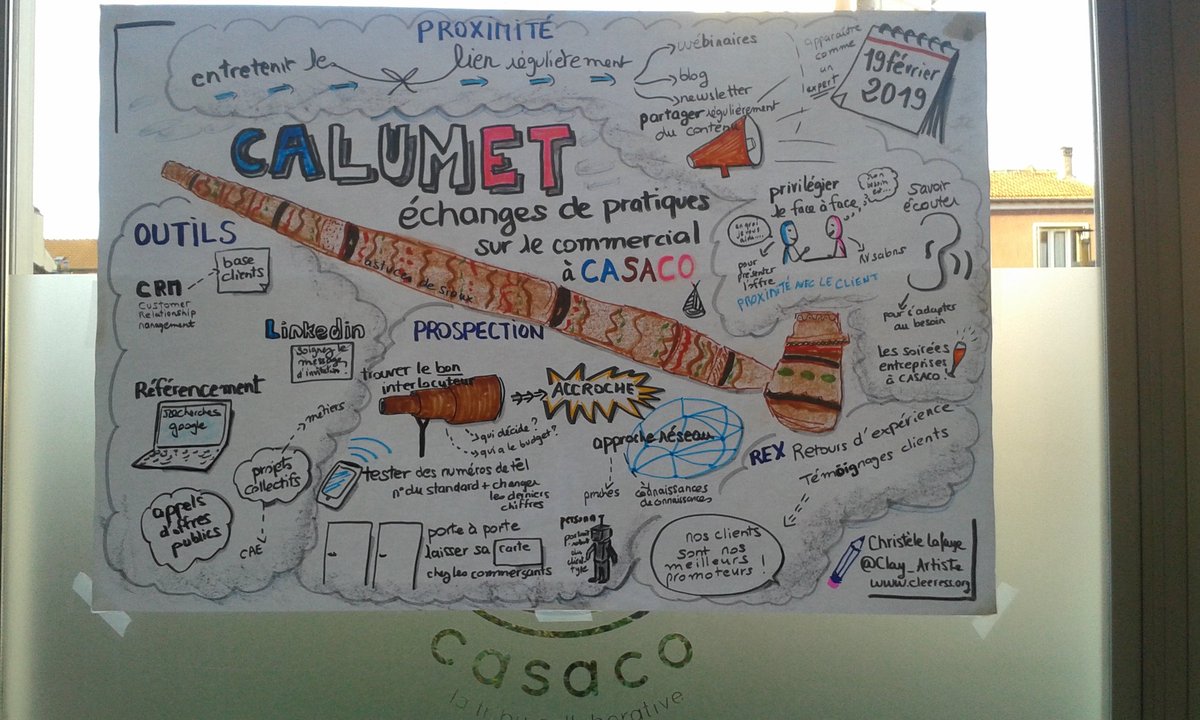 PROXIMITÉ
entretenir le lien régulièrement
wébinaires
blog
newsletter
partager régulièrement
du contenu
apparaître
comme
un
expert
19 février
2019
CALUMET
échanges de pratiques
sur le commercial
à CASACO
astuces de Sioux
privilégier
le face à face
mon
besoin
est...
pour
présenter
l'offre
PROXIMITÉ AVEC LE CLIENT
savoir
écouter
pour s'adapter
au besoin
les soirées
entreprises
à CASACO!
OUTILS
CRM
Customer
Relationship
management
base
clients
Linkedin
soignez le
message
d'invitation
Référencement
recherches
google
métiers
projets
collectifs
CAE
appels
d'offres
publics
PROSPECTION
trouver le bon
interlocuteur
ACCROCHE
qui décide?
qui a le budget?
tester des numéros de tél
n° du standard + changer
les derniers
chiffres
porte à porte
laisser sa carte
chez les commerçants
approche réseau
proches
connaissances
de connaissances
PERSONA
portrait
robot
du
client
type
REX Retours d'expérience
Témoignages clients
nos clients
sont nos
meilleurs
promoteurs !
Christèle Lafaye
@Clay_Artiste
www.cleeress.org
casaco